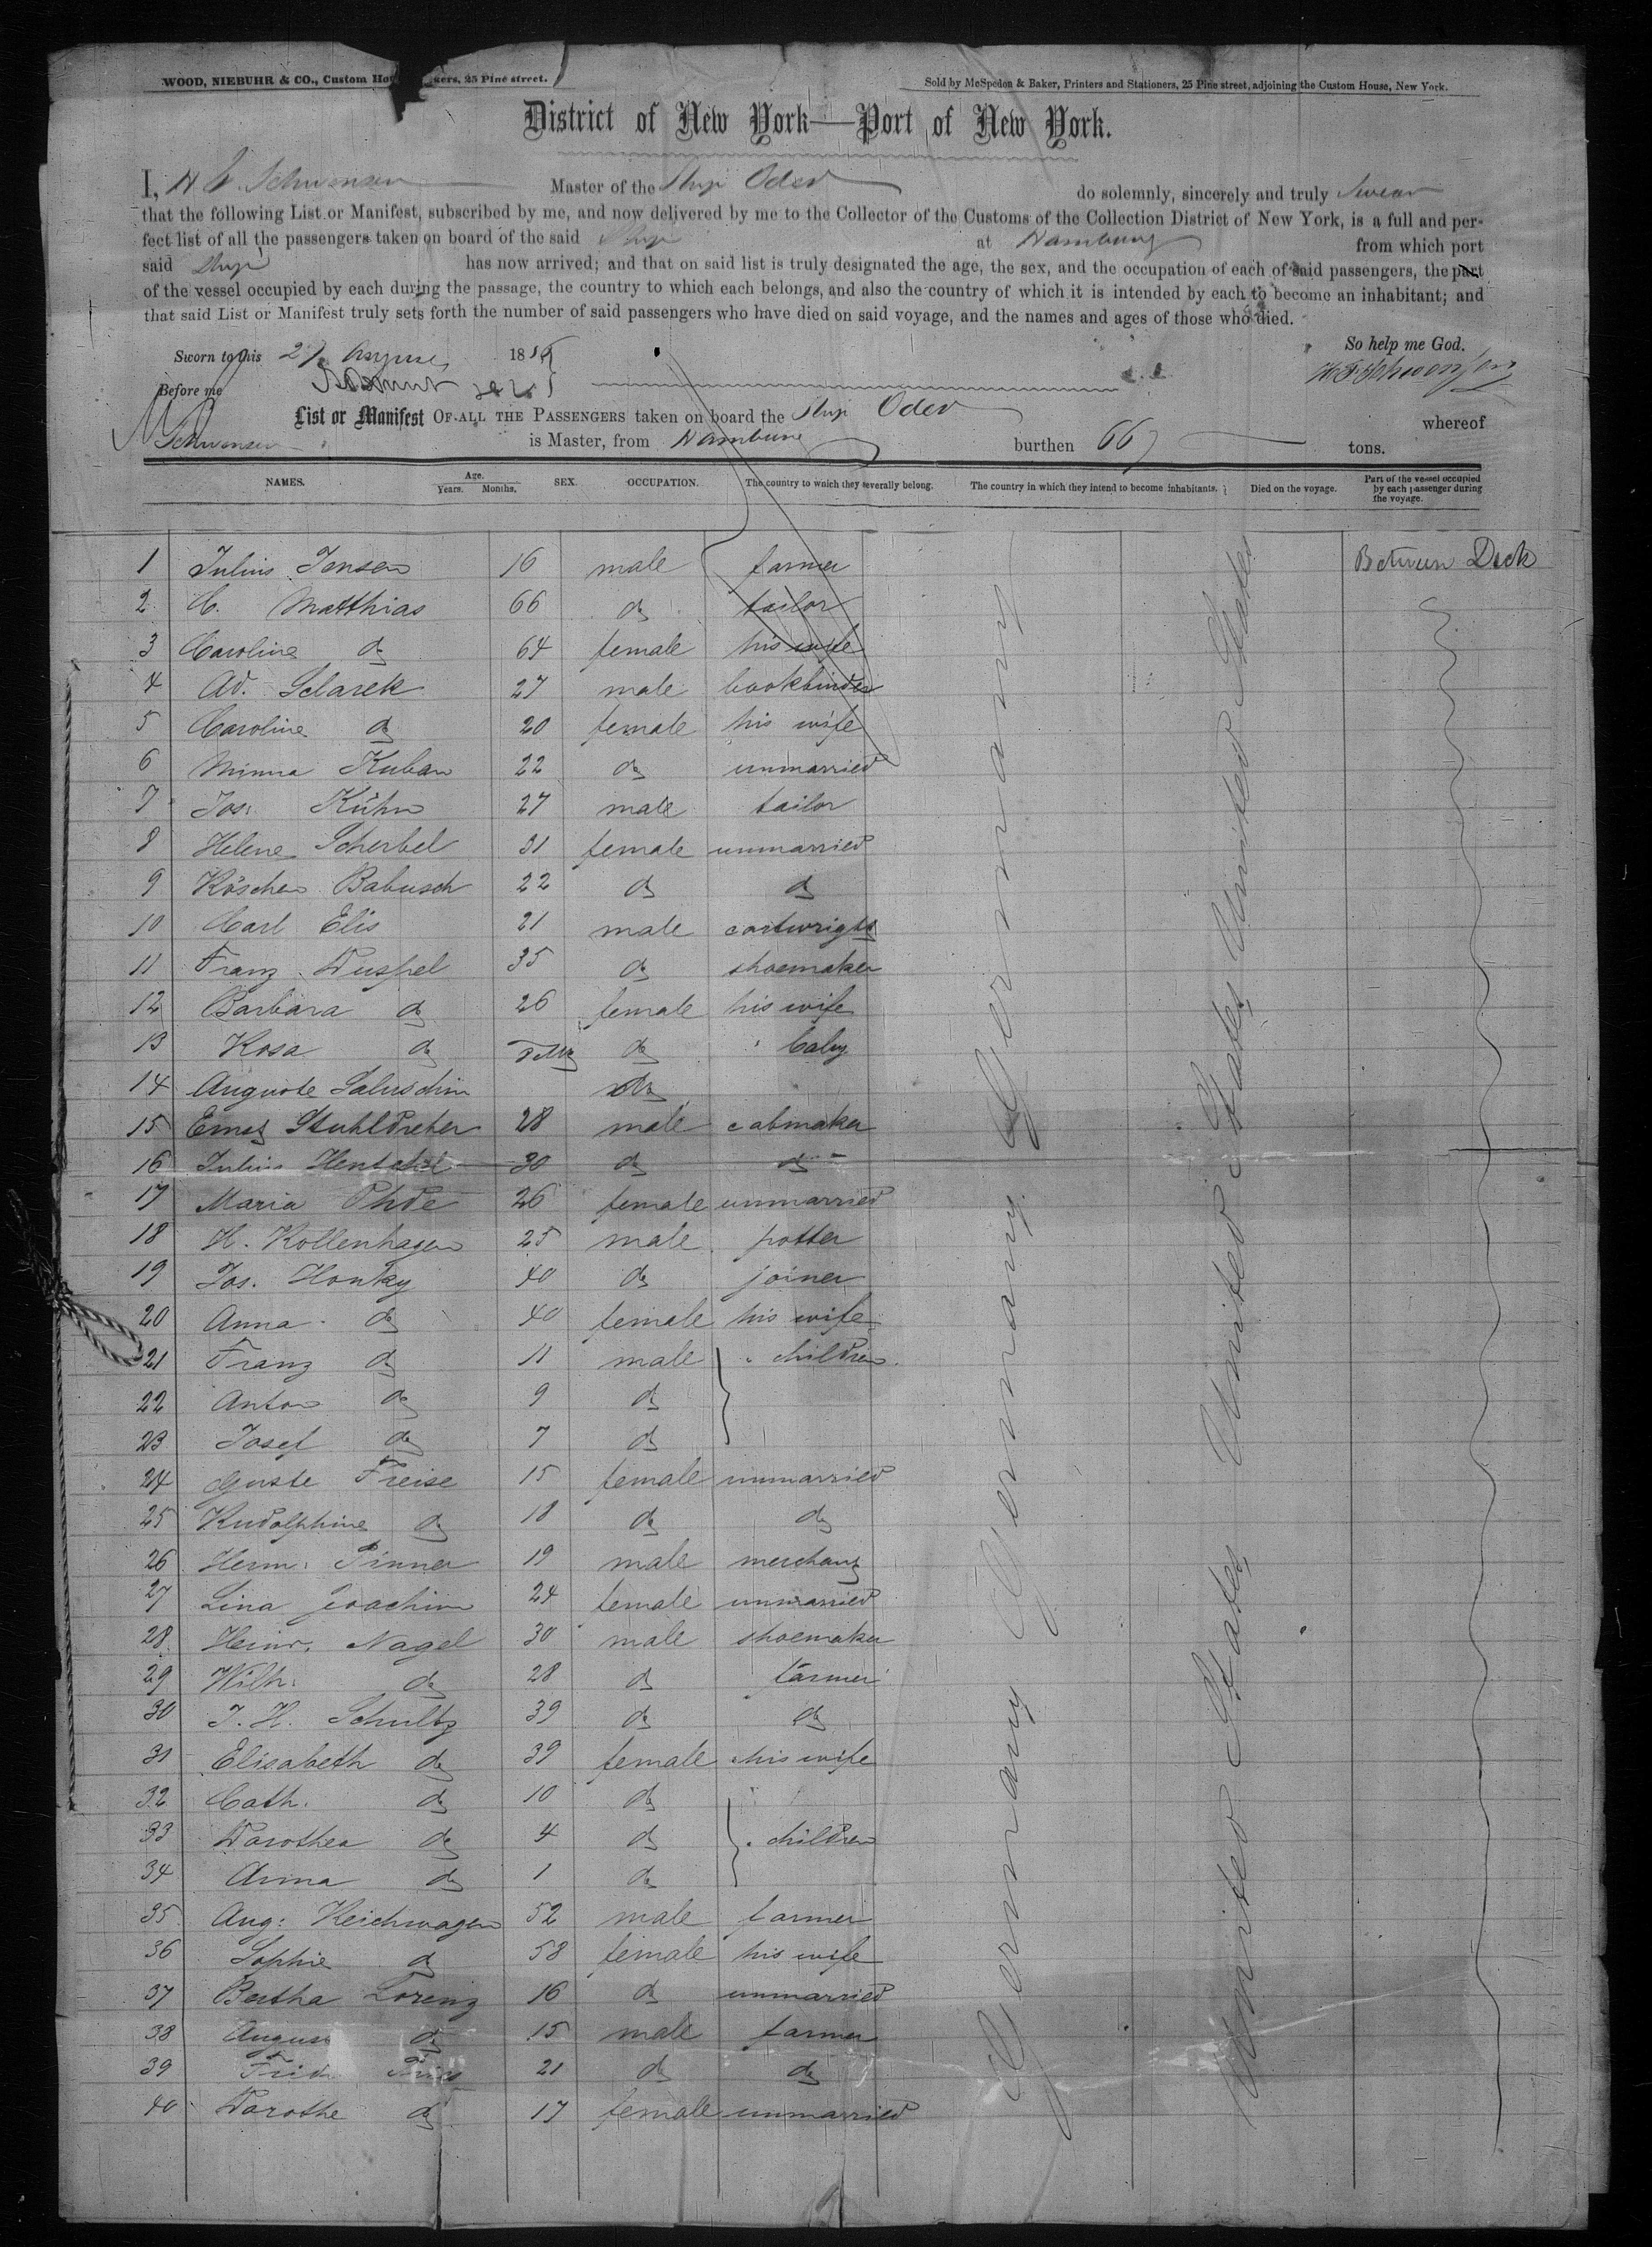 WOOD, NIEBUHR & CO., Custom Ho kers, 25 Pine street.
Sold by McSpedon & Baker, Printers and Stationers, 25 Pine street, adjoining the Custom House, New York.
District of New York—Port of New York.
I, H Schwensen Master of the Ship Oder do solemnly, sincerely and truly swear
that the following List or Manifest, subscribed by me, and now delivered by me to the Collector of the Customs of the Collection District of New York, is a full and per-
fect list of all the passengers taken on board of the said Ship at Hamburg from which port
said Ship has now arrived; and that on said list is truly designated the age, the sex, and the occupation of each of said passengers, the part
of the vessel occupied by each during the passage, the country to which each belongs, and also the country of which it is intended by each to become an inhabitant; and
that said List or Manifest truly sets forth the number of said passengers who have died on said voyage, and the names and ages of those who died.
So help me God.
Sworn to this 27 August 18
Before me
List or Manifest OF ALL THE PASSENGERS taken on board the Ship Oder whereof
Schwensen is Master, from Hamburg burthen 667 tons.
NAMES. Age. Years. Months. SEX. OCCUPATION. The country to which they severally belong. The country in which they intend to become inhabitants. Died on the voyage. Part of the vessel occupied by each passenger during the voyage.
1 Julius Jensen 16 male farmer Between Deck
2 C. Matthias 66 do tailor
3 Caroline do 64 female his wife
4 Ad. Sclarek 27 male bookbinder
5 Caroline do 20 female his wife
6 Minna Kuban 22 do unmarried
7 Jos: Kühn 27 male tailor
8 Helene Scherbel 31 female unmarried
9 Röschen Babusch 22 do do
10 Carl Elis 21 male cartwright
11 Franz Duspel 35 do shoemaker
12 Barbara do 26 female his wife
13 Rosa do do baby
14 Auguste do
15 Ernst Stuhldreher 28 male cabmaker
16 Julius Hentschel 30 do do
17 Maria Ohde 26 female unmarried
18 H. Kollenhagen 25 male potter
19 Jos. Honky 40 do joiner
20 Anna do 40 female his wife
21 Franz do 11 male " children
22 Anton do 9 do
23 Josef do 7 do
24 Guste Freise 15 female unmarried
25 Rudolphine do 18 do do
26 Herm: Pinner 19 male merchant
27 Lina Joachim 24 female unmarried
28 Heinr. Nagel 30 male shoemaker
29 Wilh: do 28 do farmer
30 J. H. Schultz 39 do do
31 Elisabeth do 39 female his wife
32 Cath. do 10 do
33 Dorothea do 4 do " children
34 Anna do 1 do
35 Aug: Reichwagen 52 male farmer
36 Sophie do 58 female his wife
37 Bertha Lorenz 16 do unmarried
38 August do 15 male farmer
39 Fried 21 do do
40 Dorothe do 17 female unmarried
Germany Germany Germany Germany
United States United States United States